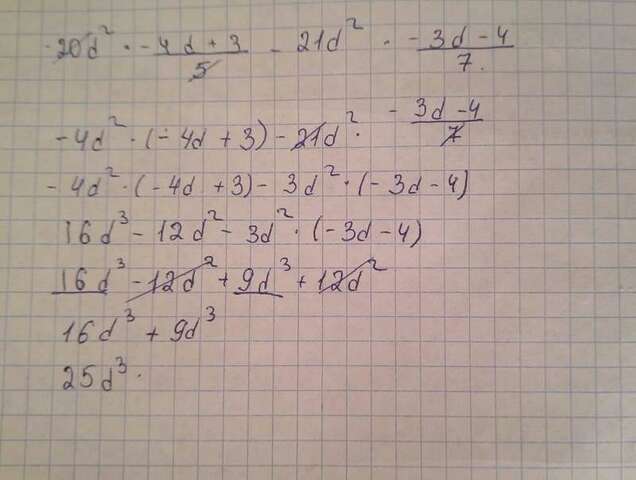 -20d² · (-4d + 3)/5 - 21d² · (-3d - 4)/7.
-4d² · (-4d + 3) - 21d² · (-3d - 4)/7
-4d² · (-4d + 3) - 3d² · (-3d - 4)
16d³ - 12d² - 3d² · (-3d - 4)
16d³ - 12d² + 9d³ + 12d²
16d³ + 9d³
25d³.